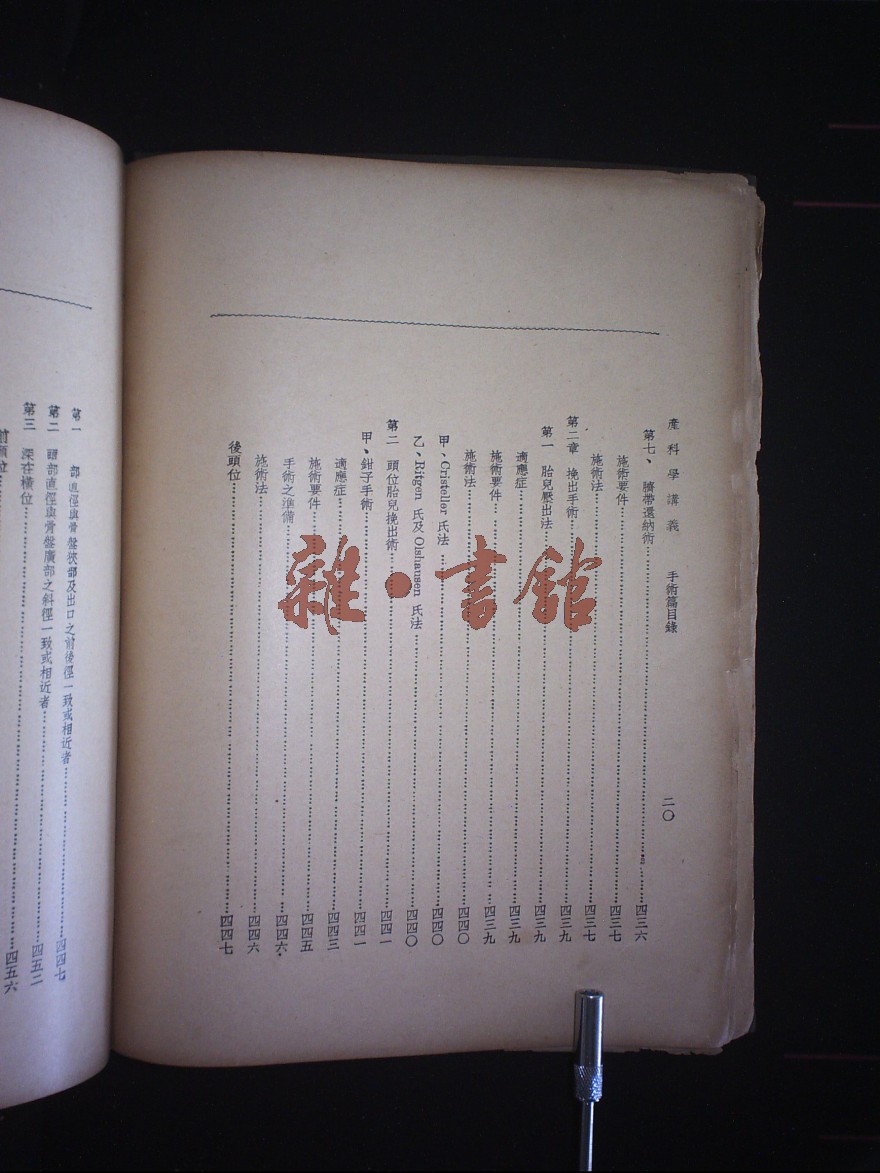 產科學講義 手術篇目錄 二〇
第七、臍帶還納術 四三六
施術要件 四三七
施術法 四三七
第二章 挽出手術 四三九
第一 胎兒壓出法 四三九
適應症 四三九
施術要件 四三九
施術法 四四〇
甲、Cristeller 氏法 四四〇
乙、Ritgen 氏及 Olshausen 氏法 四四〇
第二 頭位胎兒挽出術 四四一
甲、鉗子手術 四四一
適應症 四四三
施術要件 四四五
手術之準備 四四六
施術法 四四六
後頭位 四四七
第一 部直徑與骨盤狹部及出口之前後徑一致或相近者 四四七
第二 頭部直徑與骨盤廣部之斜徑一致或相近者 四五二
第三 深在橫位
前頭位 四五六
雜·書館